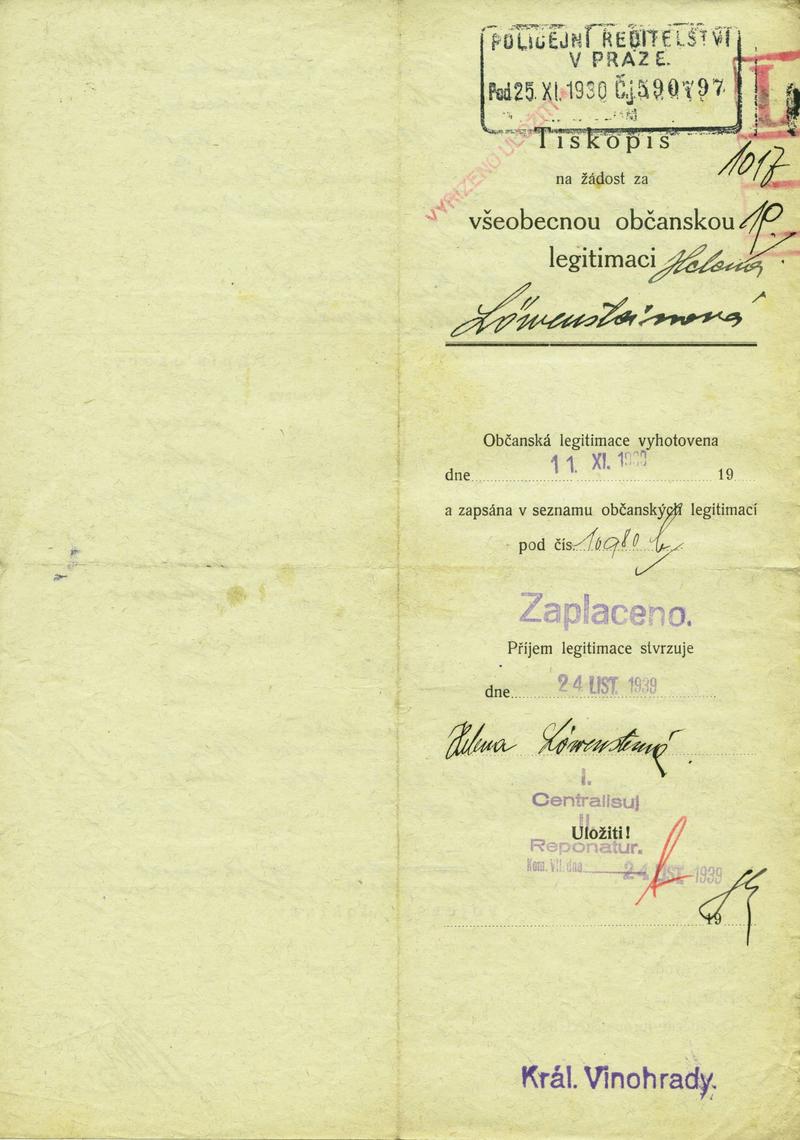 POLICEJNÍ ŘEDITELSTVÍ
V PRAZE.
Pod 25. XI. 1930 Čj. 590797
VYŘÍZENO ULOŽITI
Tiskopis
1017
na žádost za
všeobecnou občanskou
legitimaci Helena
Löwensteinová
Občanská legitimace vyhotovena
dne 11. XI. 19
a zapsána v seznamu občanských legitimací
pod čís. 10980
Zaplaceno.
Příjem legitimace stvrzuje
dne 24 LIST. 1939
Helena Löwensteinová
I.
Centralisuj
II.
Uložiti!
Reponatur.
Kom. VII. dne 24 LIST. 1939
19
Král. Vinohrady.